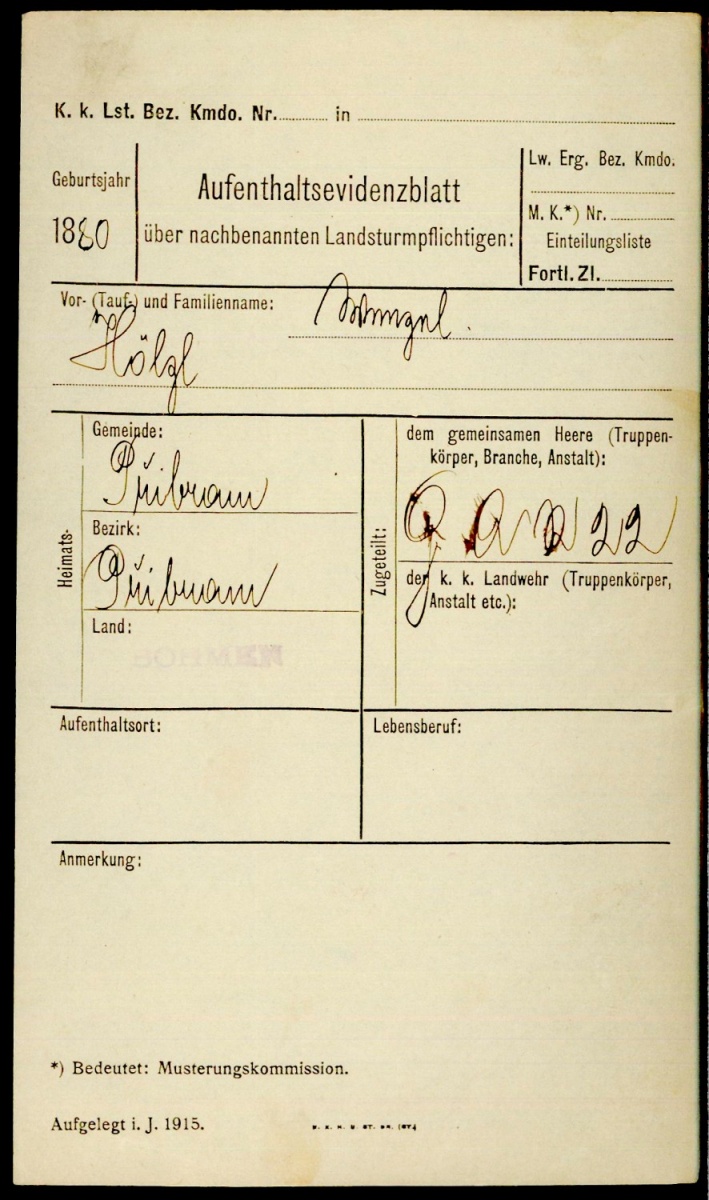 K. k. Lst. Bez. Kmdo. Nr. in
Geburtsjahr
1880
Aufenthaltsevidenzblatt
über nachbenannten Landsturmpflichtigen:
Lw. Erg. Bez. Kmdo.
M. K.*) Nr.
Einteilungsliste
Fortl. Zl.
Vor- (Tauf-) und Familienname: Wenzel.
Hölzl
Heimats-
Gemeinde:
Přibram
Bezirk:
Přibram
Land:
Zugeteilt:
dem gemeinsamen Heere (Truppen-
körper, Branche, Anstalt):
22
der k. k. Landwehr (Truppenkörper,
Anstalt etc.):
Aufenthaltsort:
Lebensberuf:
Anmerkung:
*) Bedeutet: Musterungskommission.
Aufgelegt i. J. 1915.